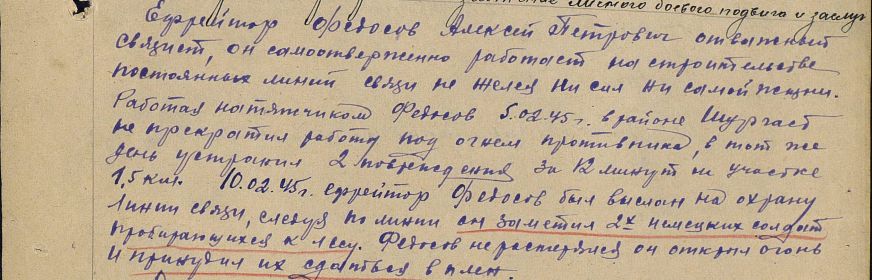 личного боевого подвига и заслуг
Ефрейтор Федосов Алексей Петрович отважный
связист, он самоотверженно работает на строительстве
постоянных линий связи не желея ни сил ни самой жизни.
Работая натятчиком Федосов 5.02.45г. в районе Шургаст
не прекратил работу под огнем противника, в тот же
день устранил 2 повреждения за 12 минут на участке
1,5 км. 10.02.45г. ефрейтор Федосов был выслан на охрану
линии связи, следуя по линии он заметил 2х немецких солдат
пробирающихся к лесу. Федосов не растерялся он открыл огонь
и принудил их сдаться в плен.